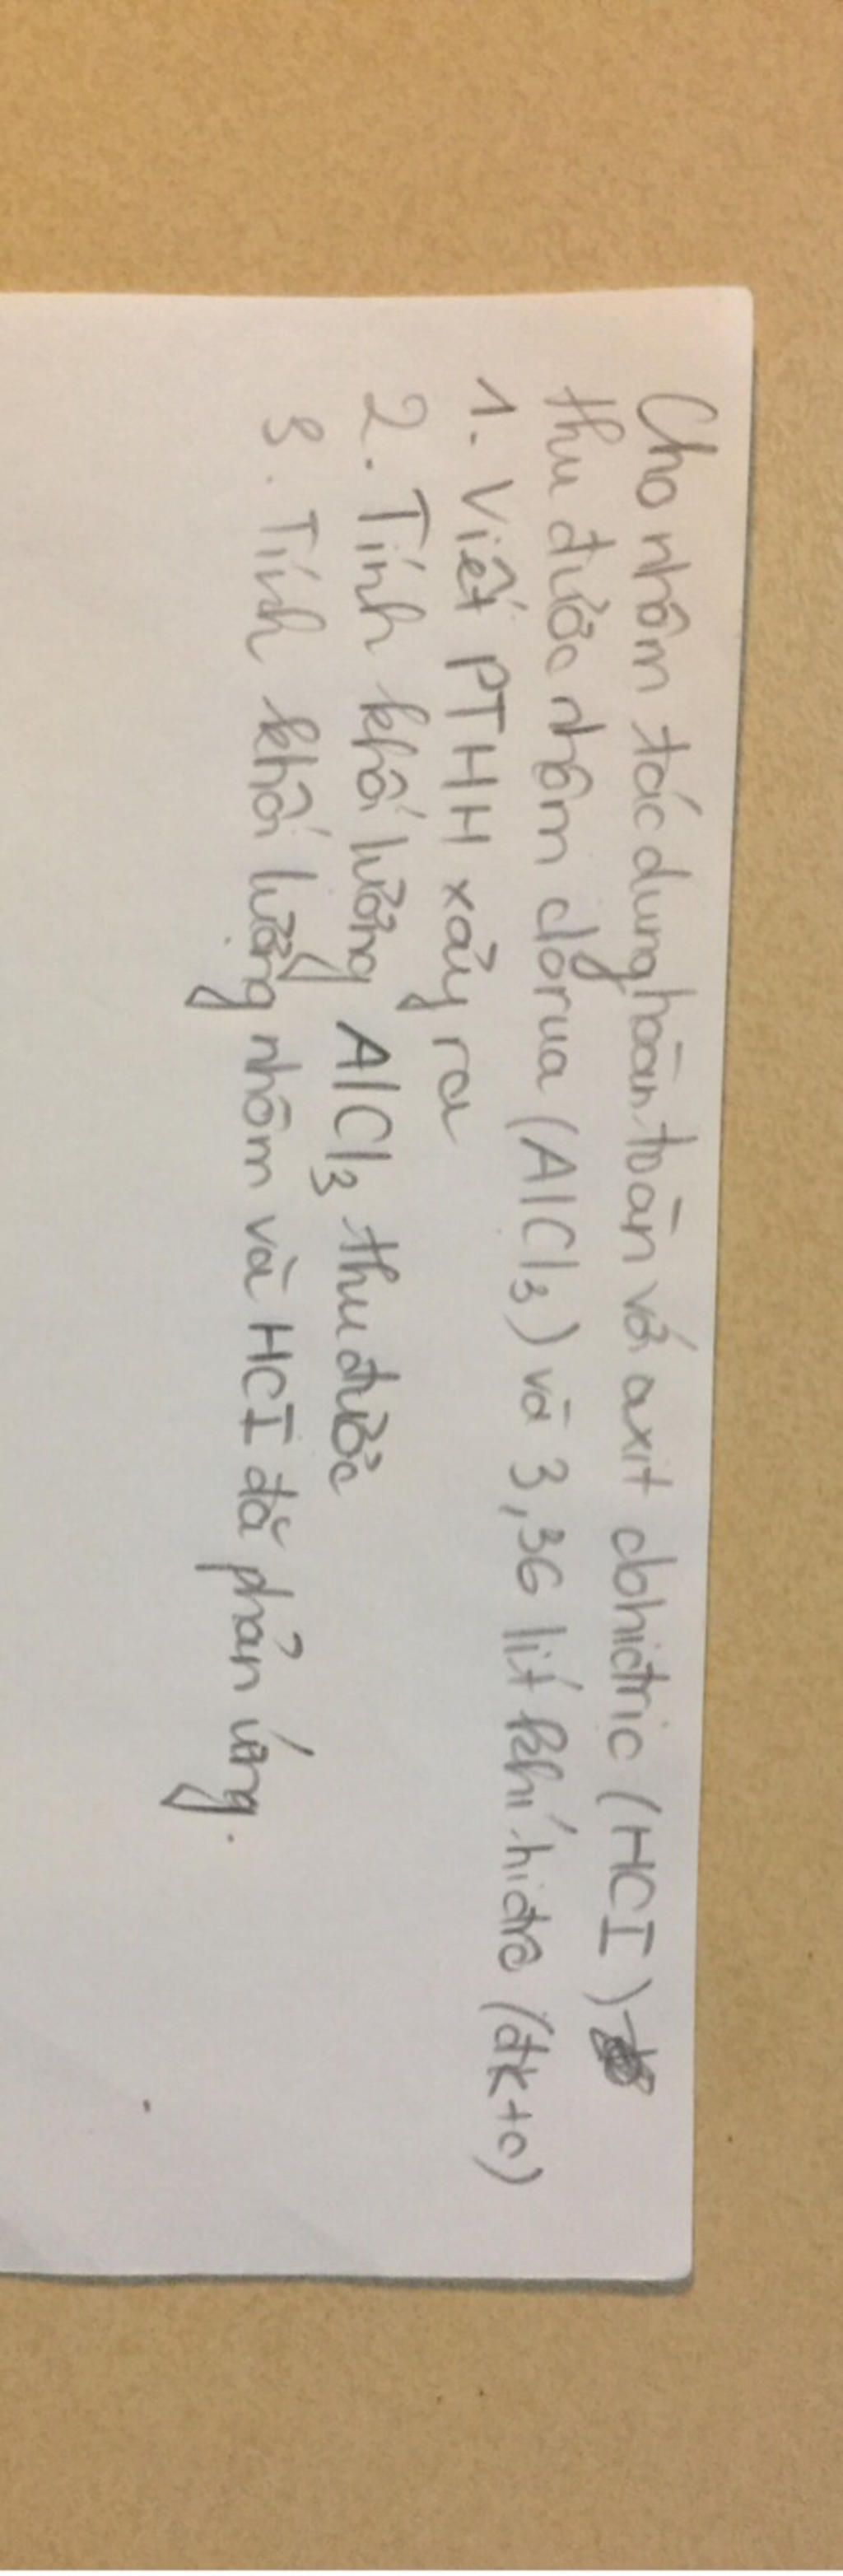 Cho nhôm tác dụng hoàn toàn với axit clohiđric (HCI)
thu được nhôm clorua (AlCl3) và 3,36 lít khí hiđro (đktc)
1. Viết PTHH xảy ra
2. Tính khối lượng AlCl3 thu được
3. Tính khối lượng nhôm và HCI đã phản ứng.